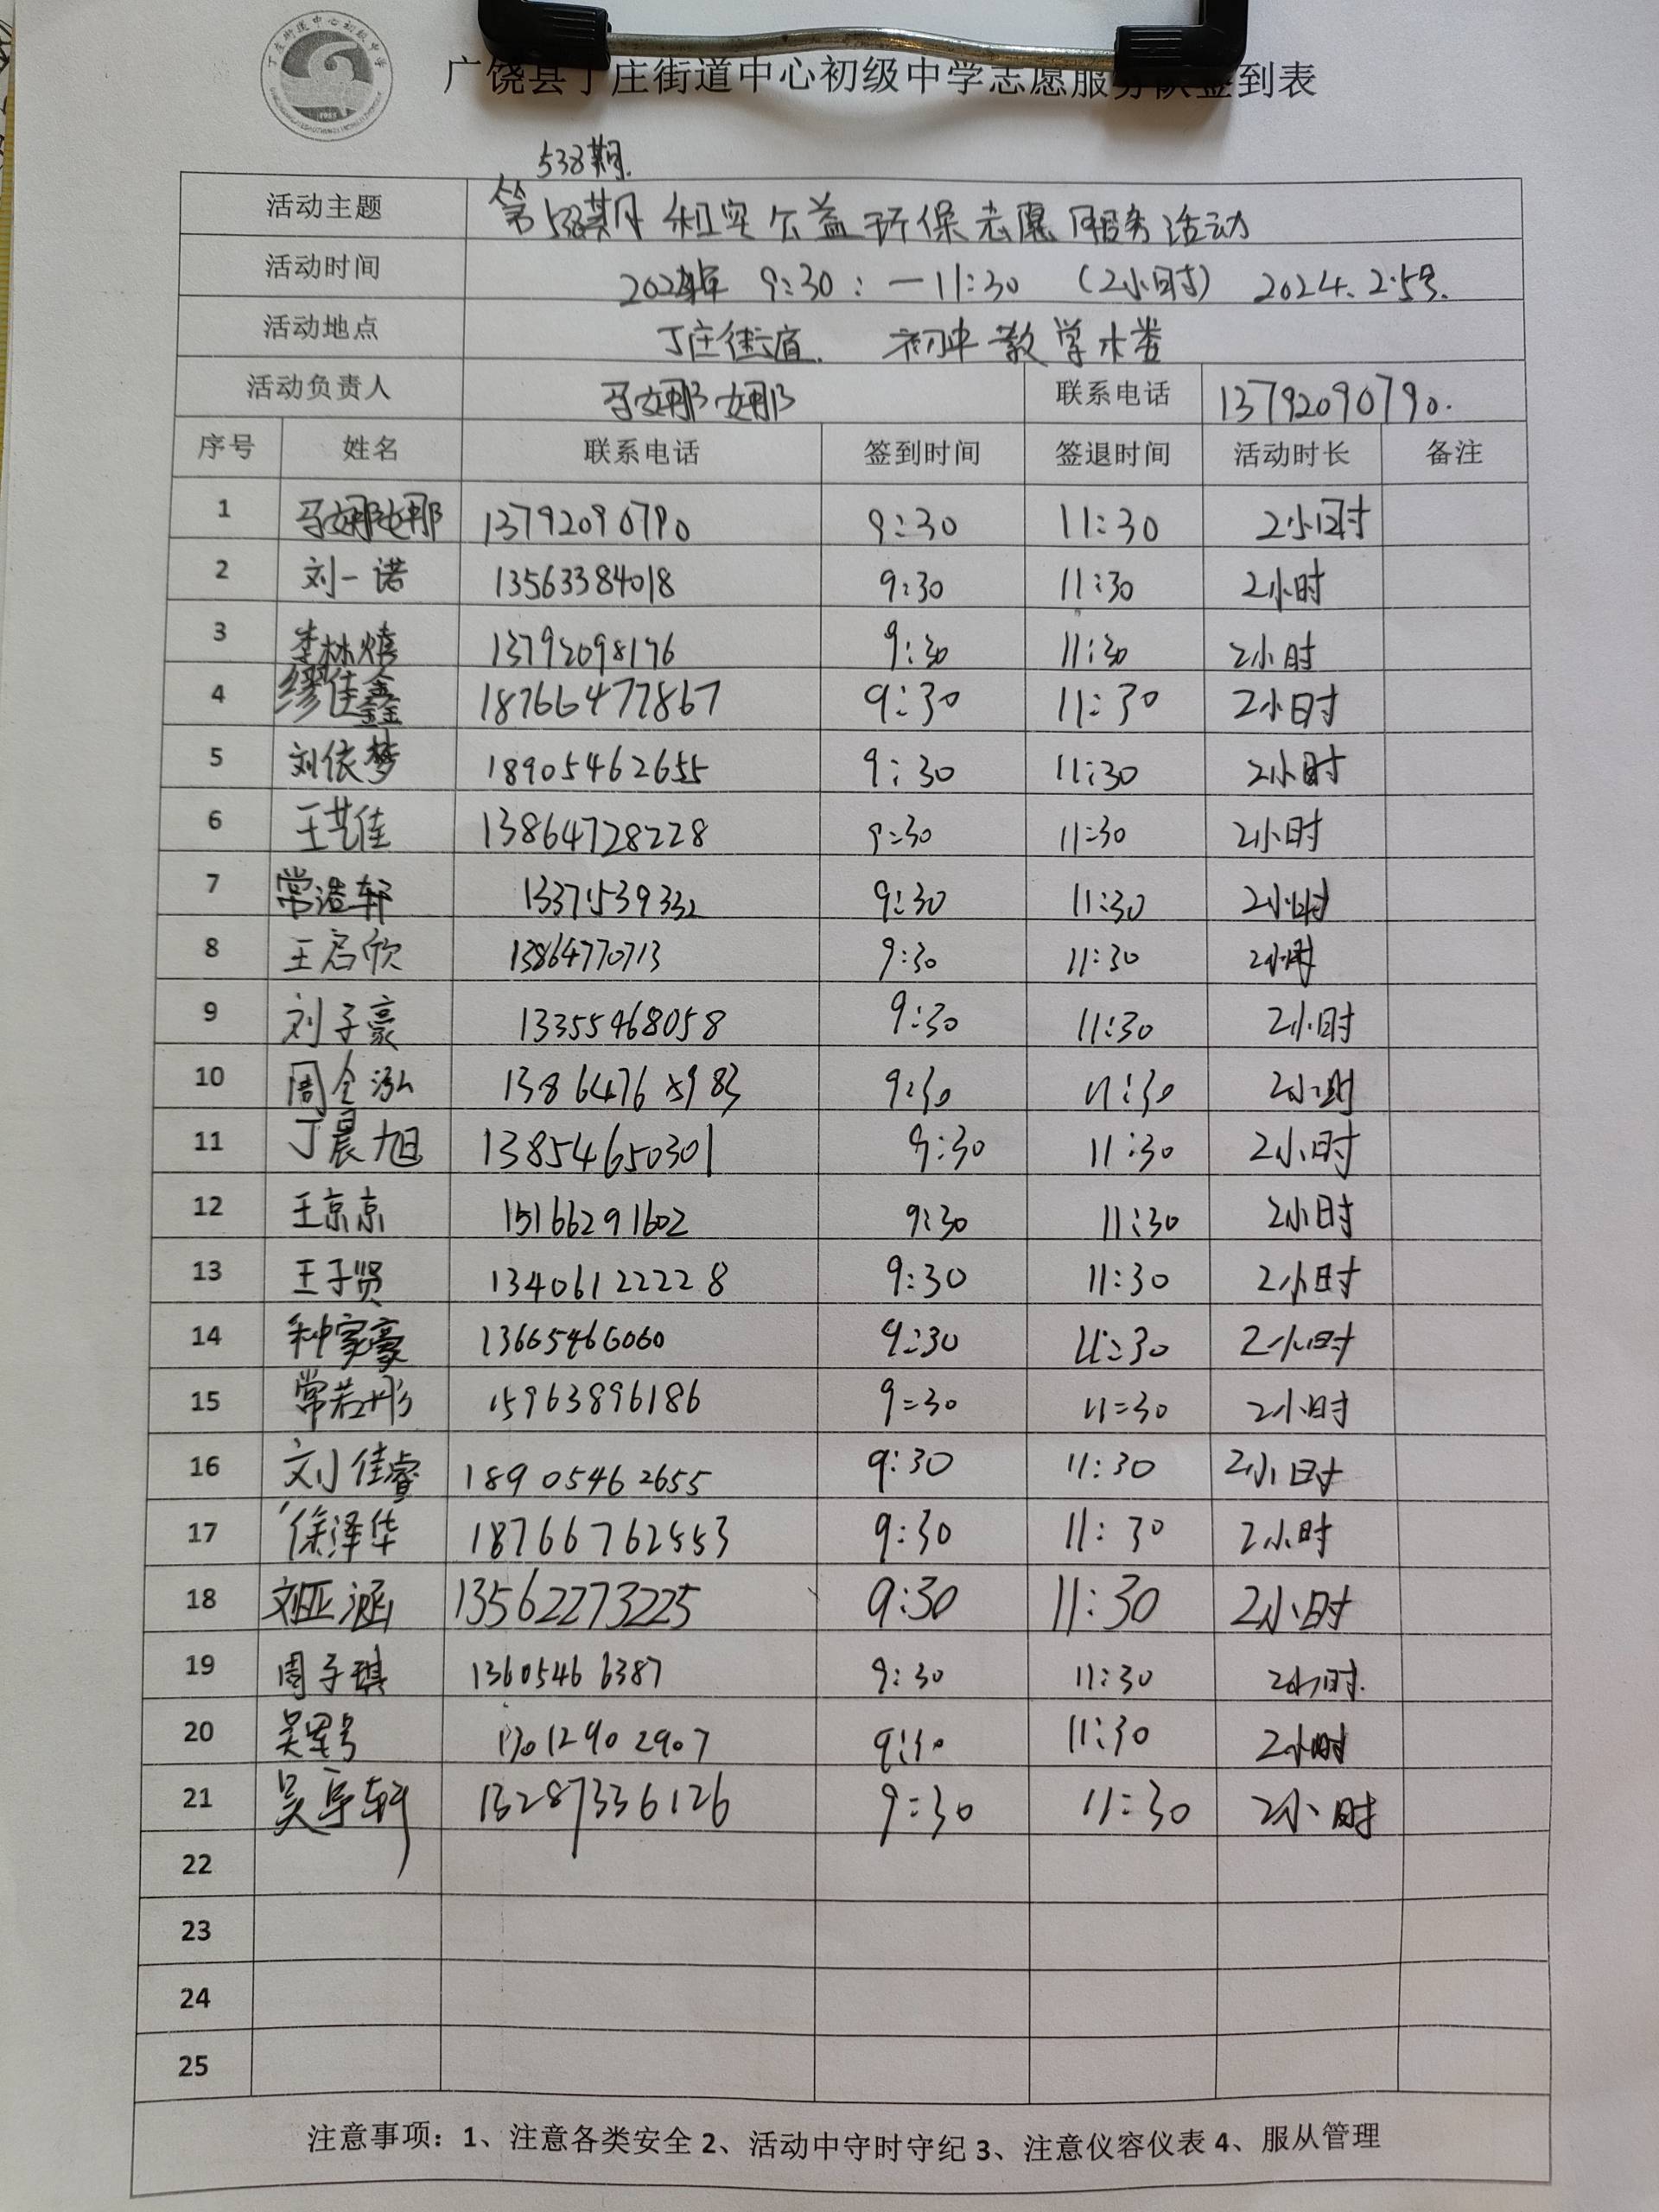 广饶县丁庄街道中心初级中学志愿服务队签到表
538期.
活动主题 第538期 和实公益环保志愿服务活动
活动时间 9:30:—11:30 (2小时) 2024.2.5号.
活动地点 丁庄街道. 初中教学楼
活动负责人 马娜娜 联系电话 13792090790.
序号 姓名 联系电话 签到时间 签退时间 活动时长 备注
1 马娜娜 13792090790 9:30 11:30 2小时
2 刘一诺 13563384018 9:30 11:30 2小时
3 李林熺 13792098176 9:30 11:30 2小时
4 缪佳鑫 18766477867 9:30 11:30 2小时
5 刘依梦 18905462655 9:30 11:30 2小时
6 王艺佳 13864728228 9:30 11:30 2小时
7 常浩轩 13371539332 9:30 11:30 2小时
8 王启欣 13864770713 9:30 11:30 2小时
9 刘子豪 13355468058 9:30 11:30 2小时
10 周全泓 9:30 11:30 2小时
11 丁晨旭 13854650301 9:30 11:30 2小时
12 王京京 15166291602 9:30 11:30 2小时
13 王子贤 13406122228 9:30 11:30 2小时
14 种家豪 13665466060 9:30 11:30 2小时
15 常若彤 15963896186 9:30 11:30 2小时
16 刘佳睿 18905462655 9:30 11:30 2小时
17 徐泽华 18766762553 9:30 11:30 2小时
18 刘亚涵 13562273225 9:30 11:30 2小时
19 周子琪 13605466387 9:30 11:30 2小时.
20 13012902907 9:30 11:30 2小时
21 吴宇轩 13287336126 9:30 11:30 2小时
22
23
24
25
注意事项：1、注意各类安全 2、活动中守时守纪 3、注意仪容仪表 4、服从管理